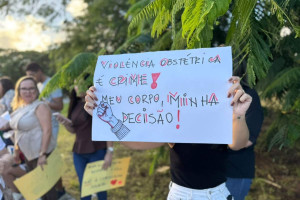 VIOLÊNCIA OBSTÉTRICA
É CRIME!
MEU CORPO, MINHA
DECISÃO!